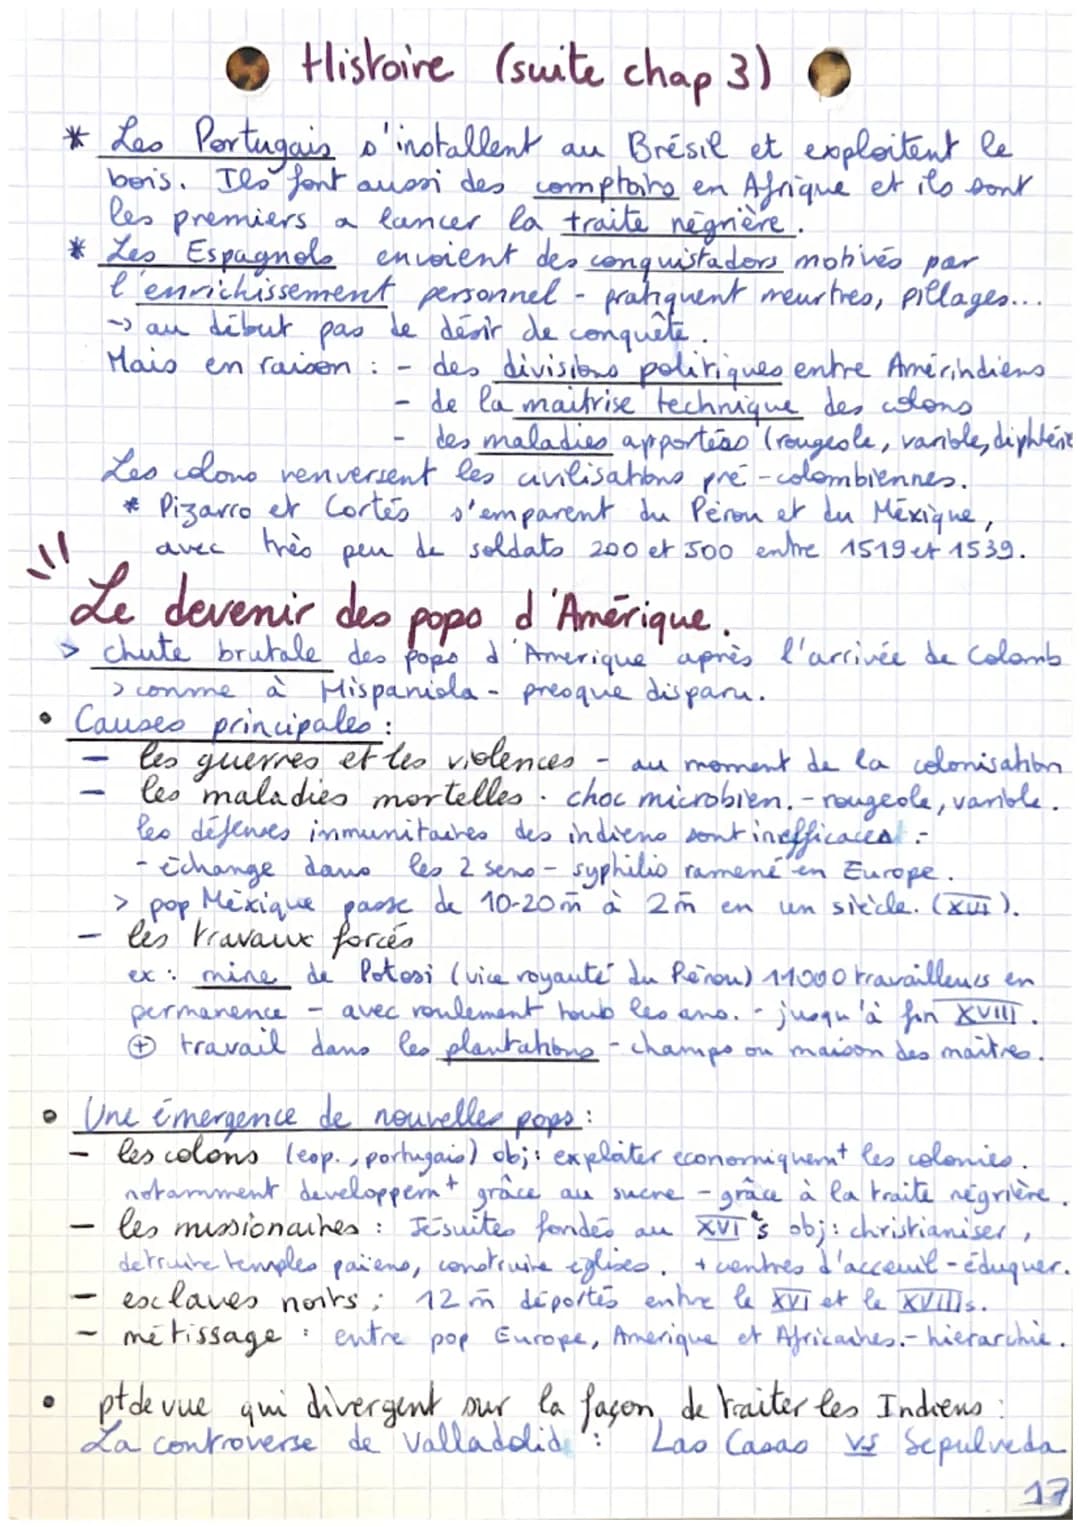 Histoire (suite chap 3)
* Les Portugais s'installent au Brésil et exploitent le
bois. Ils font aussi des comptoirs en Afrique et ils sont
les premiers a lancer la traite négrière.
* Les Espagnols envoient des conquistadors motivés par
l'enrichissement personnel - pratiquent meurtres, pillages...
-> au début pas de désir de conquête.
Mais en raison : - des divisions politiques entre Amérindiens
- de la maitrise technique des colons
- des maladies apportées (rougeole, variole, diphtérie
Les colons renversent les civilisations pré-colombiennes.
* Pizarro et Cortés s'emparent du Pérou et du Méxique,
avec très peu de soldats 200 et 500 entre 1519 et 1539.
Le devenir des pops d'Amérique.
> chute brutale des pops d'Amerique après l'arrivée de Colomb
> comme à Hispaniola - presque disparu.
• Causes principales :
- les guerres et les violences - au moment de la colonisation
- les maladies mortelles . choc microbien. - rougeole, variole.
les défenses immunitaires des indiens sont inefficaces :-
- échange dans les 2 sens - syphilis ramené en Europe.
> pop Méxique passe de 10-20m̄ à 2m̄ en un siècle. (XVI).
- les travaux forcés
ex : mine de Potosi (vice royauté du Pérou) 11000 travailleurs en
permanence - avec roulement tous les ans. - jusqu'à fin XVIII.
⊕ travail dans les plantations - champs ou maison des maîtres.
• Une émergence de nouvelles pops :
- les colons (esp., portugais) obj: exploiter economiquemt les colonies.
notamment developpemt grâce au sucre - grâce à la traite négrière.
- les missionaires : Jésuites fondés au XVIe s obj: christianiser,
detruire temples païens, construire églises. + centres d'acceuil - éduquer.
- esclaves noirs ; 12 m̄ déportés entre le XVI et le XVIIIs.
- métissage : entre pop Europe, Amerique et Africaines. - hierarchie.
• pt de vue qui divergent sur la façon de traiter les Indiens :
La controverse de Valladolid : Las Casas vs Sepulveda
17